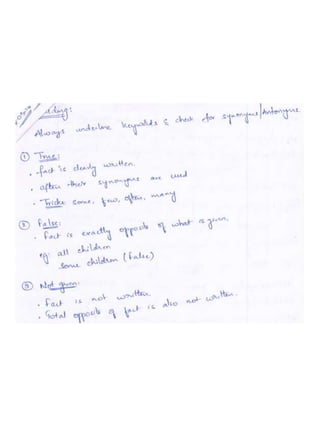 ading:
Always underline keywords & check for synonyms/Antonyms
① True:
. fact is clearly written.
. often their synonyms are used
. Tricks some, few, often, many
② False:
. Fact is exactly opposite of what is given.
eg all children
some children (False)
③ Not given:
. Fact is not written.
. Total opposite of fact is also not written.